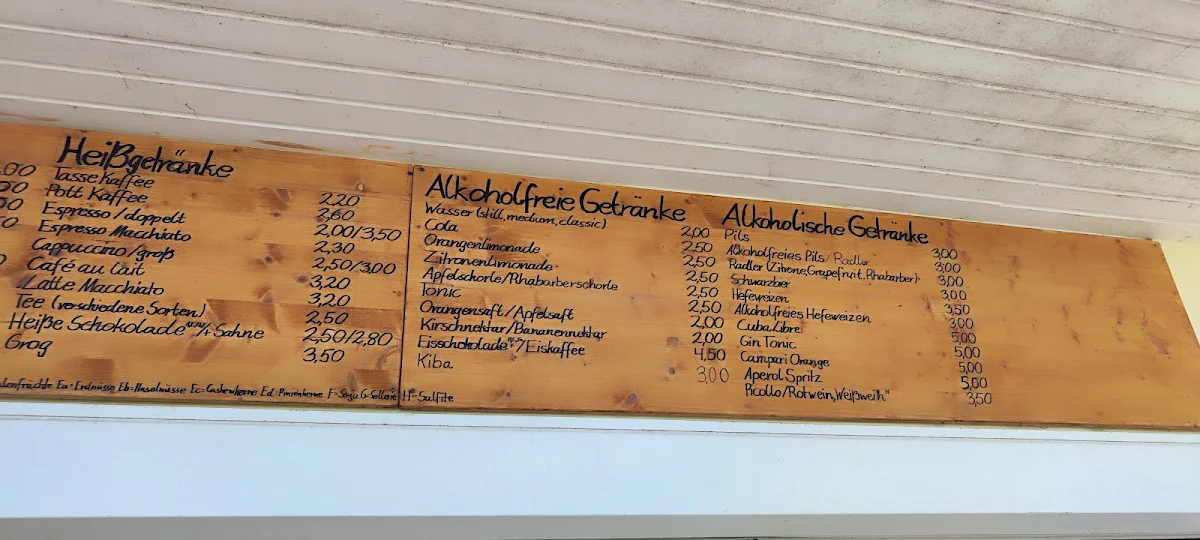 Heißgetränke
Tasse Kaffee 2,20
Pott Kaffee 2,60
Espresso/doppelt 2,00/3,50
Espresso Macchiato 2,30
Cappuccino/groß 2,50/3,00
Café au Lait 3,20
Latte Macchiato 3,20
Tee (verschiedene Sorten) 2,50
Heiße Schokolade /+Sahne 2,50/2,80
Grog 3,50
Alkoholfreie Getränke
Wasser (still, medium, classic) 2,00
Cola 2,50
Orangenlimonade 2,50
Zitronenlimonade 2,50
Apfelschorle/Rhabarberschorle 2,50
Tonic 2,50
Orangensaft/Apfelsaft 2,00
Kirschnektar/Bananennektar 2,00
Eisschokolade/Eiskaffee 4,50
Kiba 3,00
Alkoholische Getränke
Pils 3,00
Alkoholfreies Pils/Radler 3,00
Radler (Zitrone, Grapefruit, Rhabarber) 3,00
Schwarzbier 3,00
Hefeweizen 3,50
Alkoholfreies Hefeweizen 3,00
Cuba Libre 5,00
Gin Tonic 5,00
Campari Orange 5,00
Aperol Spritz 5,00
Picollo/Rotwein, Weißwein 3,50
Ea=Erdnüsse Eb=Haselnüsse Ec=Cashewkerne Ed=Pinienkerne F=Soja G=Sellerie H=Sulfite